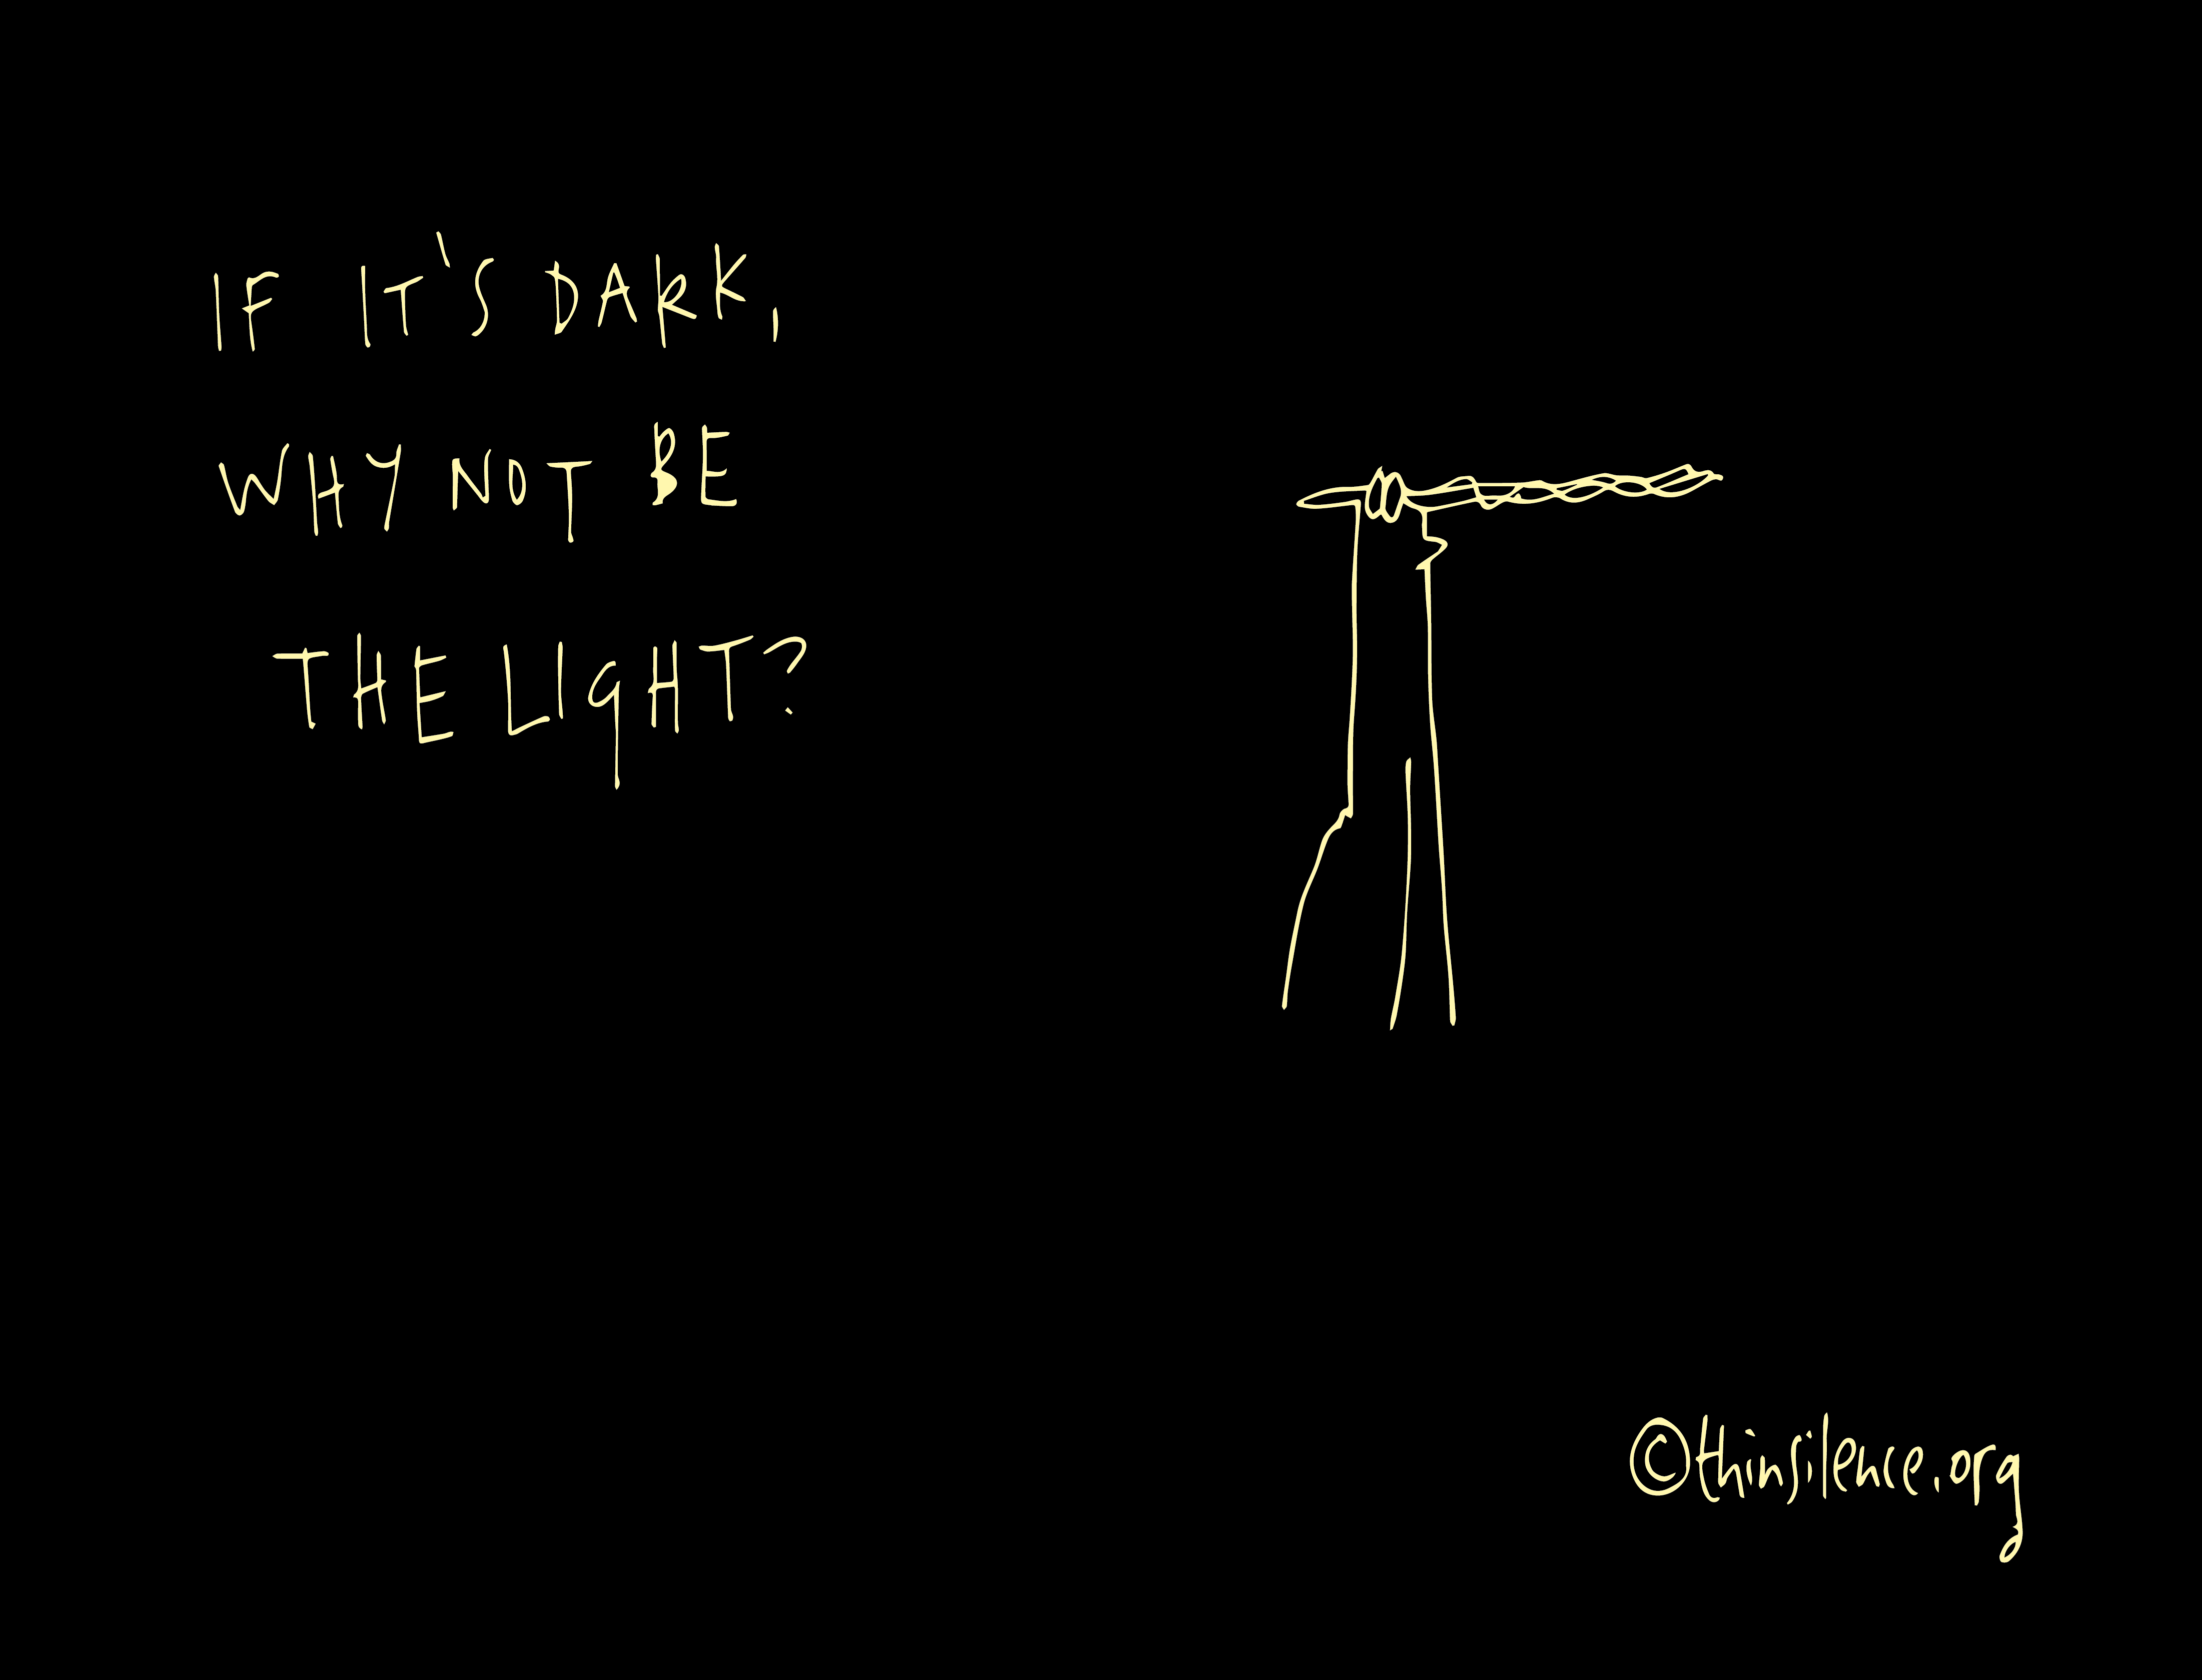 IF IT'S DARK,
WHY NOT BE
THE LIGHT?
©thinsilence.org